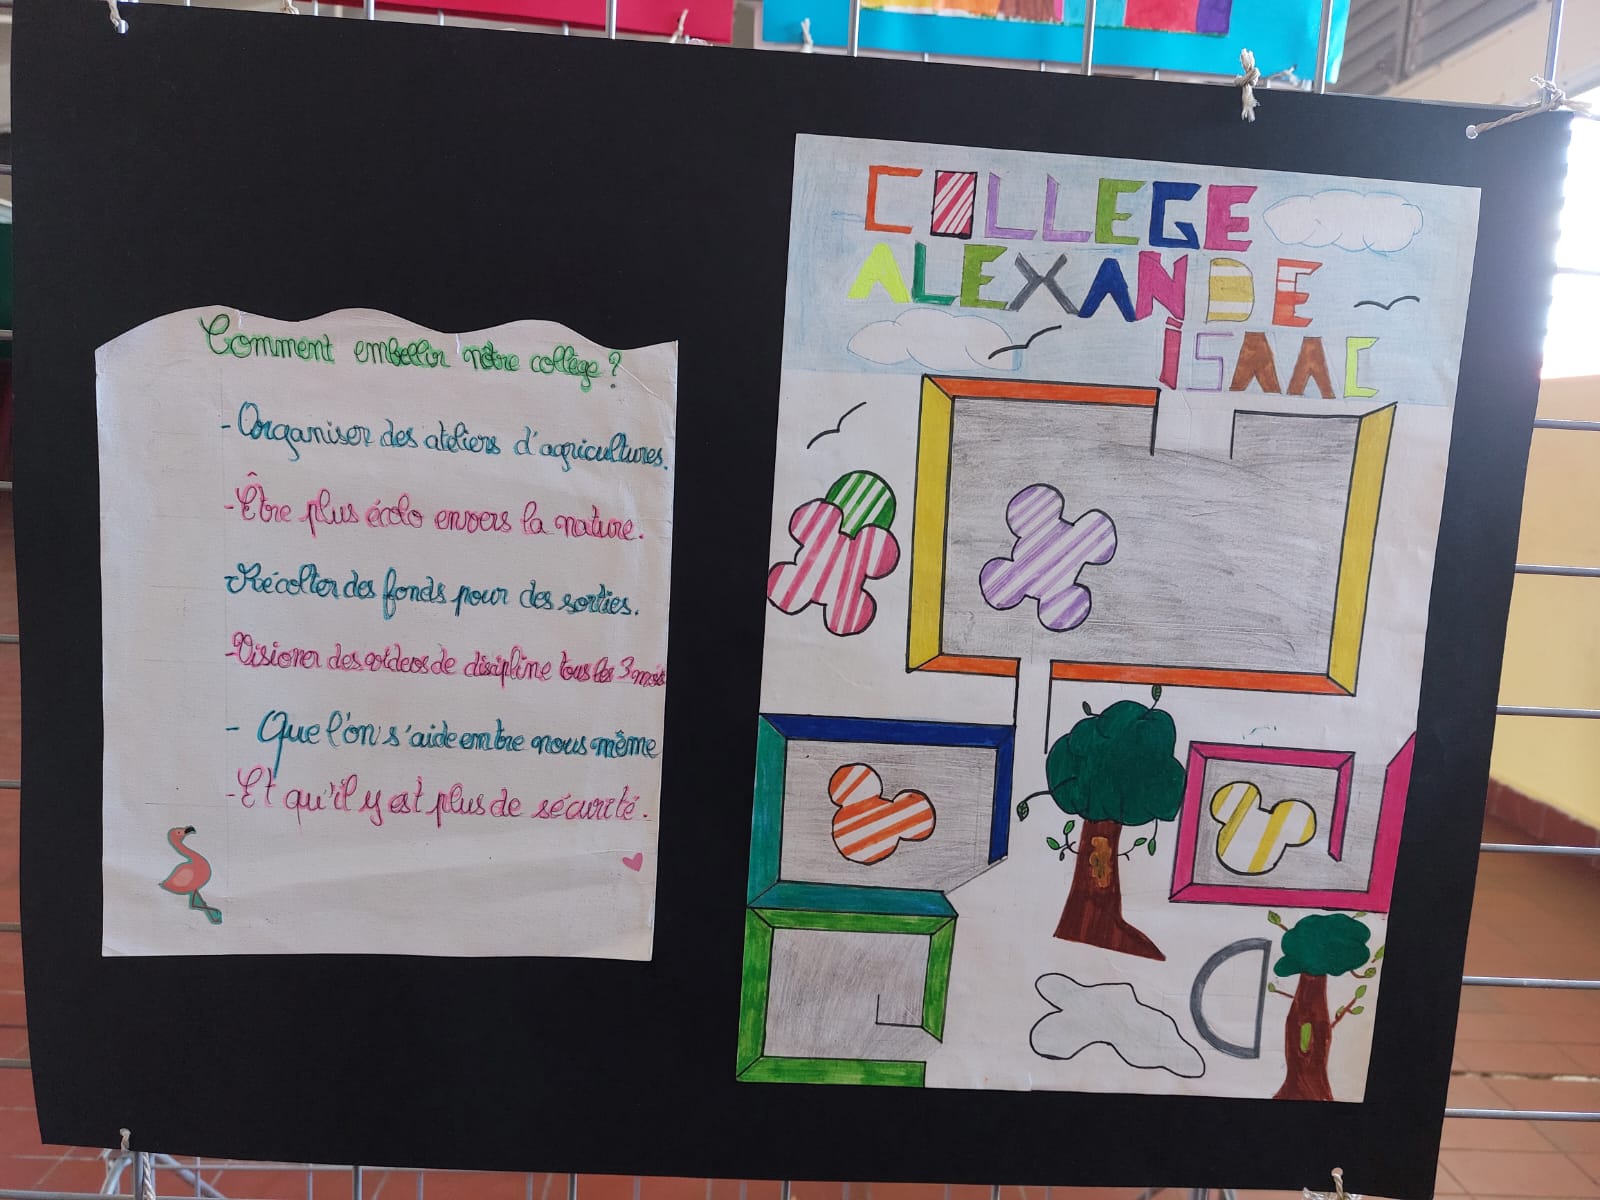 Comment embellir nôtre collège ?
- Organiser des ateliers d'agricultures.
- Être plus écolo envers la nature.
- Récolter des fonds pour des sorties.
- Visioner des de discipline tous les 3 mois
- Que l'on s'aide entre nous même
- Et qu'il y est plus de sécurité.
COLLEGE
ALEXANDE
ISAAC